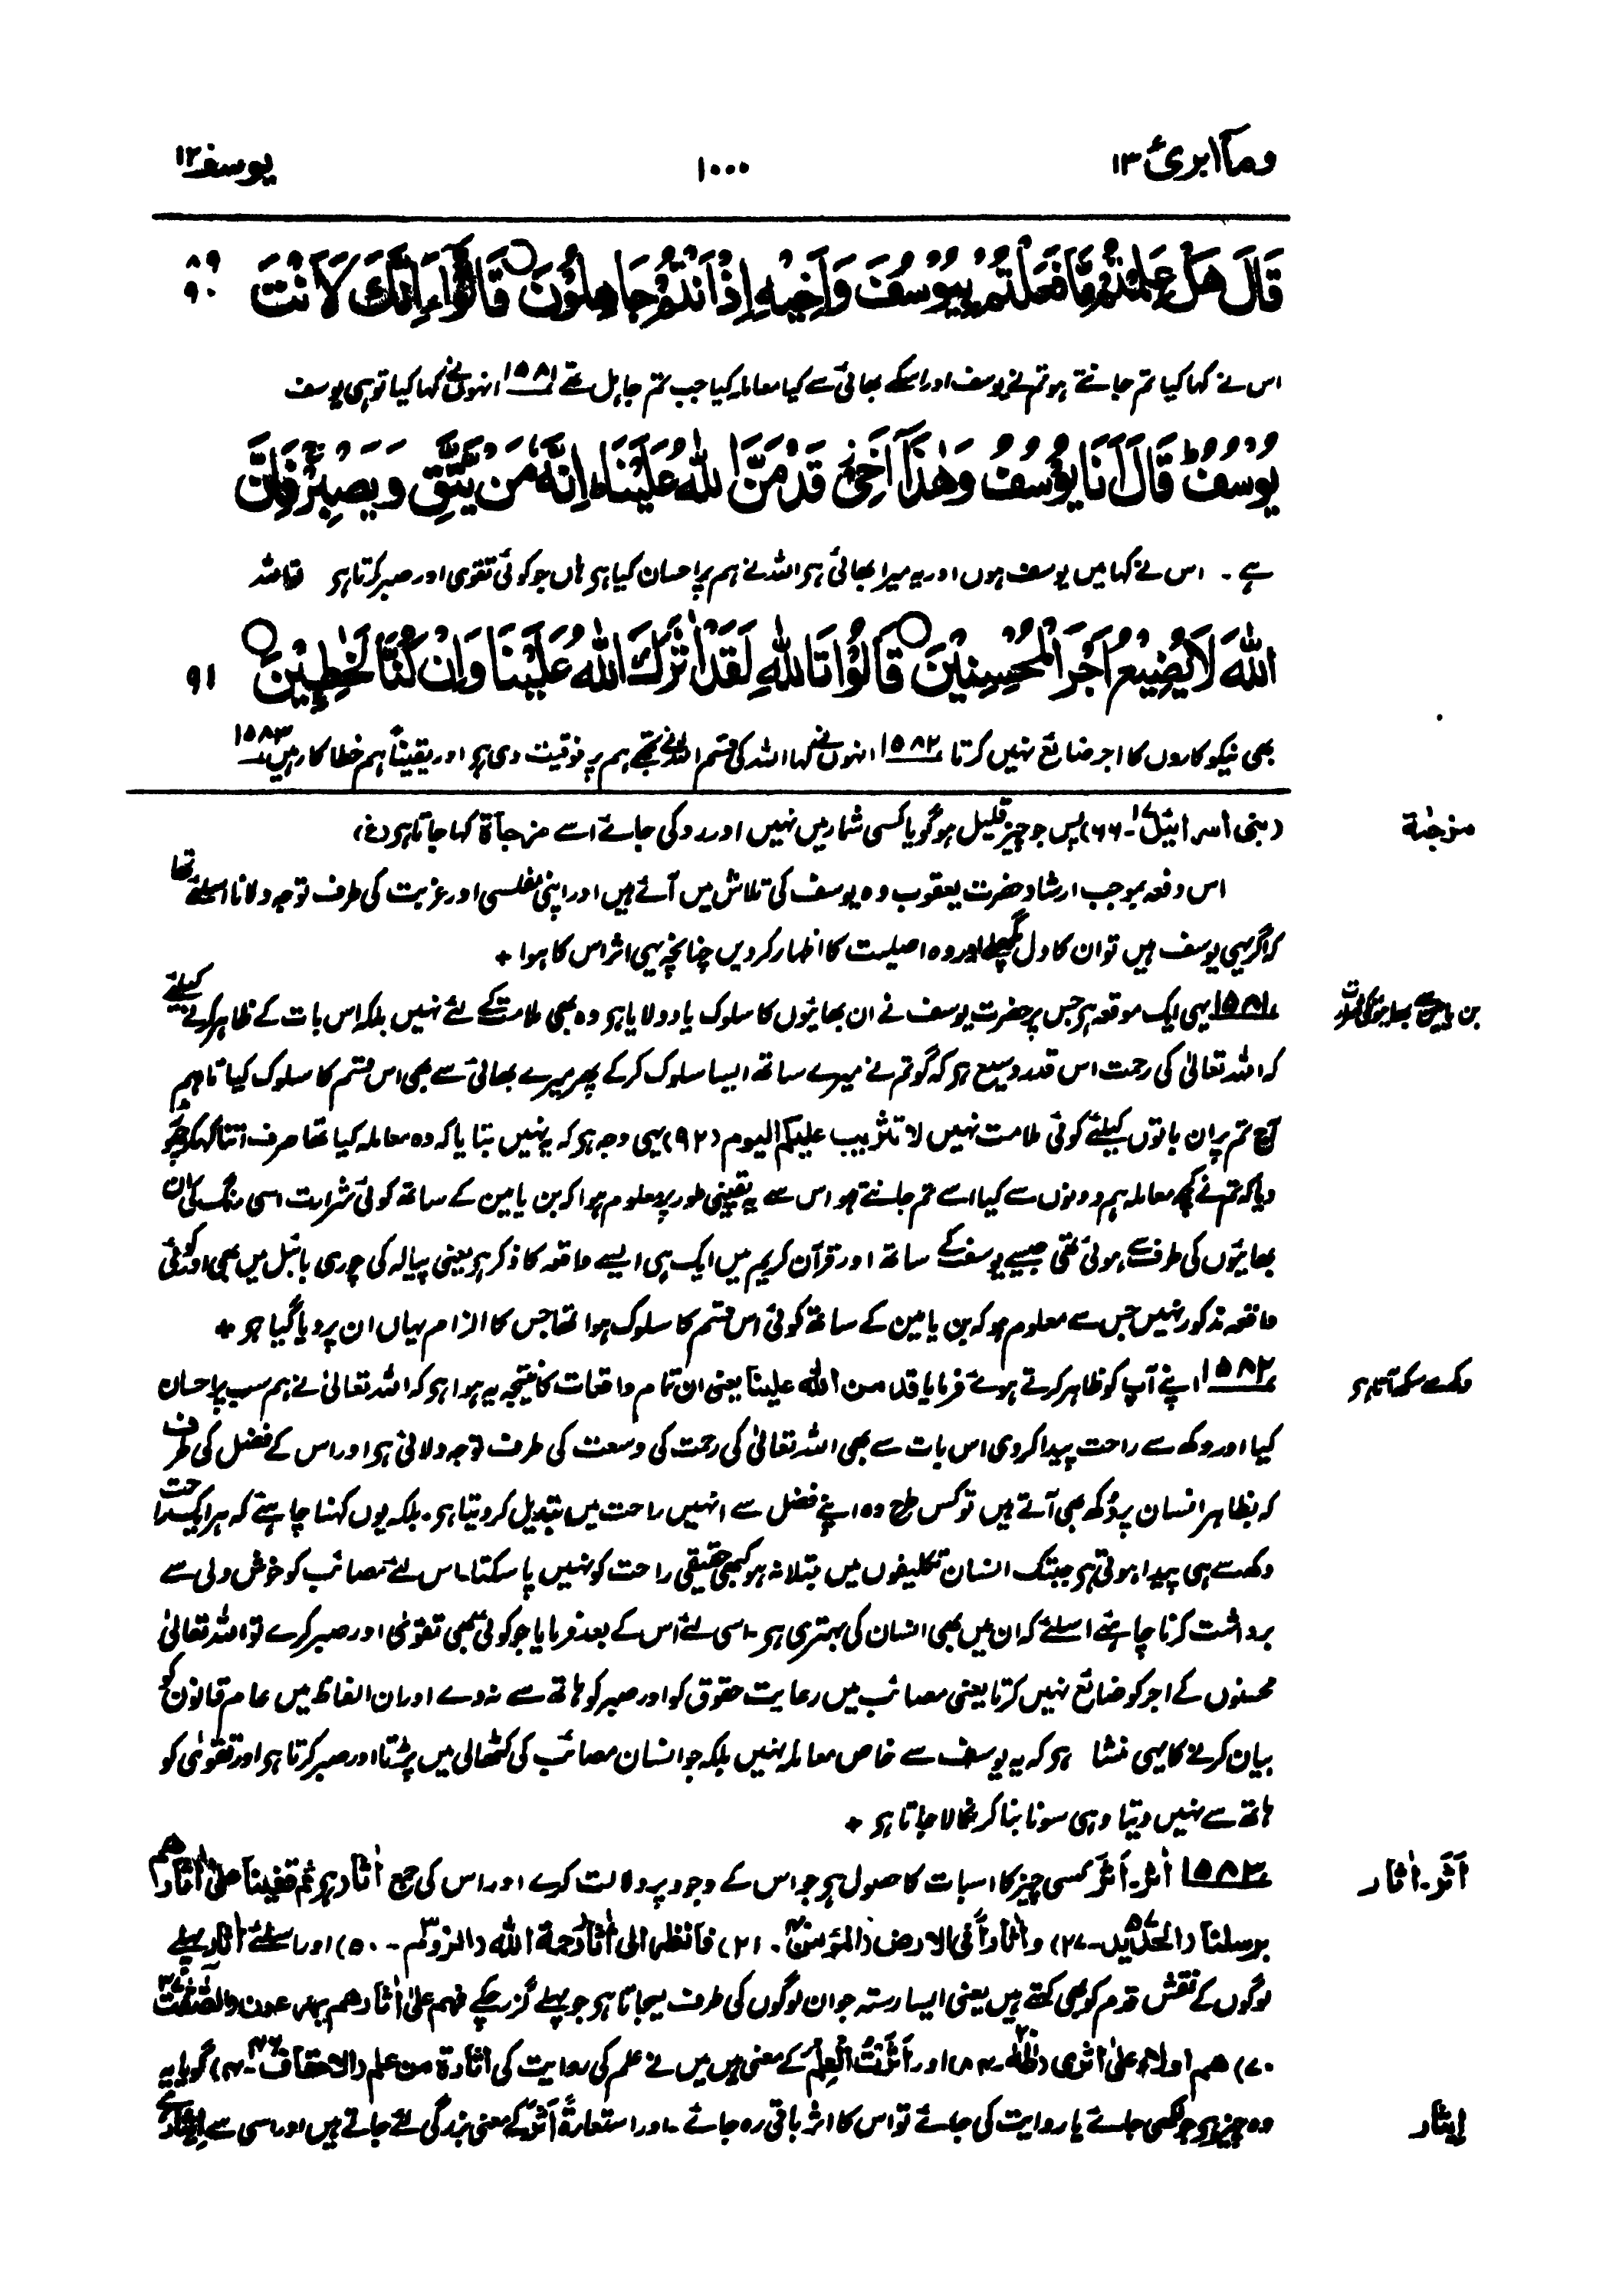 ومآ ابرئ ۱۳ ۱۰۰۰ یوسف ۱۲
قَالَ هَلْ عَلِمْتُمْ مَّا فَعَلْتُمْ بِيُوْسُفَ وَاَخِيْهِ اِذْ اَنْتُمْ جَاهِلُوْنَ ○ قَالُوْٓا ءَاِنَّكَ لَاَنْتَ ۸۹ ۹۰
اس نے کہا کیا تم جانتے ہو تم نے یوسف اور اسکے بھائی سے کیا معاملہ کیا جب تم جاہل تھے ۱۵۸۱ انہوں نے کہا کیا تو ہی یوسف
يُوْسُفُ ؕ قَالَ اَنَا يُوْسُفُ وَهٰذَآ اَخِيْ قَدْ مَنَّ اللّٰهُ عَلَيْنَا ؕ اِنَّهٗ مَنْ يَّتَّقِ وَيَصْبِرْ فَاِنَّ
ہے ۔ اس نے کہا میں یوسف ہوں اور یہ میرا بھائی ہر اللہ نے ہم پر احسان کیا ہر ہاں جو کوئی تقوی اور صبر کرتا ہر تو اللہ
اللّٰهَ لَا يُضِيْعُ اَجْرَ الْمُحْسِنِيْنَ ○ قَالُوْا تَاللّٰهِ لَقَدْ اٰثَرَكَ اللّٰهُ عَلَيْنَا وَاِنْ كُنَّا لَخٰطِـِٕيْنَ ○ ۹۱
بھی نیکو کاروں کا اجر ضائع نہیں کرتا ۱۵۸۲ انہوں نے کہا اللہ کی قسم اللہ نے تجھے ہم پر فوقیت دی ہر اور یقیناً ہم خطا کار ہیں ۱۵۸۳
مزجٰة
(بنی اسرائیل ۱۷۔ ۶۶) پس جو چیز قلیل ہو گویا کسی شمار میں نہیں اور رد کی جائے اسے مزجاة کہا جاتا ہر (غ)
اس دفعہ بموجب ارشاد حضرت یعقوب وہ یوسف کی تلاش میں آئے ہیں اور اپنی مفلسی اور غربت کی طرف توجہ دلانا اسلئے تھا
کہ اگر یہی یوسف ہیں تو ان کا دل پگھلے اور وہ اصلیت کا اظہار کر دیں چنانچہ یہی اثر اس کا ہوا +
بن یامین سے بھائیوں کی شرارت
۱۵۸۱ یہی ایک موقعہ ہر جس پر حضرت یوسف نے ان بھائیوں کا سلوک یاد دلایا ہر وہ بھی ملامت کے لئے نہیں بلکہ اس بات کے ظاہر کرنے کیلئے
کہ اللہ تعالیٰ کی رحمت اس قدر وسیع ہر کہ گو تم نے میرے ساتھ ایسا سلوک کر کے پھر میرے بھائی سے بھی اس قسم کا سلوک کیا تاہم
آج تم پر ان باتوں کیلئے کوئی ملامت نہیں لا تثریب علیکم الیوم (۹۲) یہی وجہ ہر کہ یہ نہیں بتایا کہ وہ معاملہ کیا تھا صرف اتنا کہکر چھوڑ
دیا کہ تم نے کچھ معاملہ ہم دونوں سے کیا اسے تم جانتے ہو اس سے یہ یقینی طور پر معلوم ہوا کہ بن یامین کے ساتھ کوئی شرارت اسی رنگ کی ان
بھائیوں کی طرف سے ہوئی تھی جیسے یوسف کے ساتھ اور قرآن کریم میں ایک ہی ایسے واقعہ کا ذکر ہر یعنی پیالہ کی چوری بائبل میں بھی اور کوئی
واقعہ مذکور نہیں جس سے معلوم ہو کہ بن یامین کے ساتھ کوئی اس قسم کا سلوک ہوا تھا جس کا الزام یہاں ان پر دیا گیا ہو +
دکھ سے سکھ آتا ہر
۱۵۸۲ اپنے آپ کو ظاہر کرتے ہوئے فرمایا قد من اللہ علینا یعنی ان تمام واقعات کا نتیجہ یہ ہوا ہر کہ اللہ تعالیٰ نے ہم سب پر احسان
کیا اور دکھ سے راحت پیدا کر دی اس بات سے بھی اللہ تعالیٰ کی رحمت کی وسعت کی طرف توجہ دلائی ہر اور اس کے فضل کی طرف
کہ بظاہر انسان پر دُکھ بھی آتے ہیں تو کس طرح وہ اپنے فضل سے انہیں راحت میں تبدیل کر دیتا ہر۔ بلکہ یوں کہنا چاہئے کہ ہر ایک راحت
دکھ سے ہی پیدا ہوتی ہر جبتک انسان تکلیفوں میں مبتلا نہ ہو کبھی حقیقی راحت کو نہیں پا سکتا۔ اس لئے مصائب کو خوش دلی سے
برداشت کرنا چاہئے اسلئے کہ ان میں بھی انسان کی بہتری ہر۔ اسی لئے اس کے بعد فرمایا جو کوئی بھی تقویٰ اور صبر کرے تو اللہ تعالیٰ
محسنوں کے اجر کو ضائع نہیں کرتا یعنی مصائب میں رعایت حقوق کو اور صبر کو ہاتھ سے نہ دے اور ان الفاظ میں عام قانون کو
بیان کرنے کا یہی منشا ہر کہ یہ یوسف سے خاص معاملہ نہیں بلکہ جو انسان مصائب کی کٹھالی میں پڑتا اور صبر کرتا ہر اور تقویٰ کو
ہاتھ سے نہیں دیتا وہی سونا بنا کر نکالا جاتا ہر +
اَثَر۔ اٰثار
۱۵۸۳ اٰثر۔ اَثَر کسی چیز کا اس بات کا حصول ہر جو اس کے وجود پر دلالت کرے اور اس کی جمع اٰثار ہر ثم قفینا علیٰ اٰثارھم
برسلنا (الحدید ۵۷۔ ۲۷) و اٰثارا فی الارض (المؤمن ۴۰۔ ۲۱) فانظر الی اٰثار رحمة اللہ (الروم ۳۰۔ ۵۰) اور اسلئے اٰثار پہلے
لوگوں کے نقش قدم کو بھی کہتے ہیں یعنی ایسا رستہ جو ان لوگوں کی طرف لیجاتا ہر جو پہلے گزر چکے فھم علیٰ اٰثارھم یھرعون (الصّٰفّٰت ۳۷۔
۷۰) ھم اولاء علیٰ اثری (طٰهٰ ۲۰۔ ۸۴) اور اَثَرْتُ الْعِلْمَ کے معنی ہیں میں نے علم کی روایت کی اثارة من علم (الاحقاف ۴۶۔ ۴) گویا یہ
ایثار
وہ چیز ہر جو لکھی جائے یا روایت کی جائے تو اس کا اثر باقی رہ جائے۔ اور استعارةً اَثَر کے معنی بزرگی لئے جاتے ہیں اور اسی سے اِیْثَار ہے